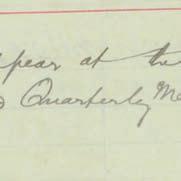 pear at the
Quarterly Me